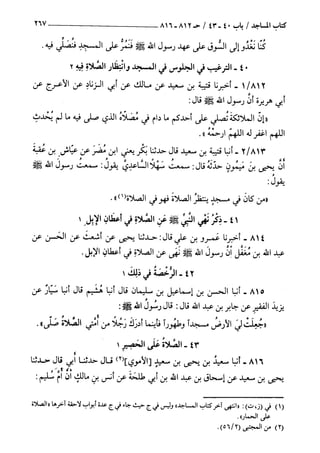 كتاب المساجد / باب ٤٠ - ٤٣ / حـ ٨١٢ - ٨١٦
٢٦٧
كُنَّا نَغْدُو إلى السُّوق على عهد رسول الله ﷺ فَنَمُرُّ على المسجد فَنُصَلِّي فيه.
٤٠ - الترغيب في الجلوس في المسجد وانْتِظَار الصَّلاة فِيهِ ٢
١/٨١٢ - أخبرنا قتيبة بن سعيد عن مالك عن أبي الزناد عن الأعرج عن
أبي هريرة أنَّ رسول الله ﷺ قال:
«إنَّ الملائكةَ تُصلي على أحدكم ما دامَ في مُصَلَّاهُ الذي صلى فيه ما لم يُحْدِثْ
اللهم اغفر له اللهمَّ ارحمهُ».
٢/٨١٣ - أنبا قتيبة بن سعيد قال حدثنا بَكْر يعني ابن مُضَر عن عيَّاش بن عُقبَة
أنَّ يحيى بنَ مَيمونٍ حدَّثَهُ قال: سمعتُ سَهْلًا السَّاعِديَّ يقول: سمعتُ رسولَ الله ﷺ
يقول:
«من كانَ في مسجدٍ ينتظِرُ الصلاةَ فهو في الصلاةِ(١)».
٤١ - ذِكْرُ نَهْي النَّبِيِّ ﷺ عَنِ الصَّلاةِ في أعطَانِ الإبِلِ ١
٨١٤ - أخبرنا عَمرو بن علي قال: حدثنا يحيى عن أشعثَ عن الحَسنِ عن
عبد الله بن مُغَفَّلٍ أنَّ رسولَ الله ﷺ نَهَى عن الصلاةِ في أعطانِ الإبل.
٤٢ - الرُّخصَةُ في ذلِكَ ١
٨١٥ - أنبا الحسن بن إسماعيل بن سليمان قال أنبا هُشَيم قال أنبا سَيَّارُ عن
يزيدَ الفقيرِ عن جابر بن عبد الله قال: قال رسُولُ الله ﷺ:
«جُعِلَتْ ليَ الأرضُ مسجداً وطَهُوراً فأينما أدرَكَ رَجُلًا من أُمَّتي الصَّلاةُ صَلَّى».
٤٣ - الصَّلاةُ عَلَى الحَصِيرِ ١
٨١٦ - أنبا سعيدُ بن يحيى بن سعيدٍ [الأموي](٢) قال حدثنا أبي قال حدثنا
يحيى بن سعيد عن إسحاق بن عبد الله بن أبي طلحَةَ عن أنس بن مالكٍ أنَّ أمَّ سُليم:
(١) في (ز،ت): «انتهى آخر كتاب المساجد» وليس في ج حيث جاء في ج عدة أبواب لاحقة آخرها «الصلاة
على الحمار».
(٢) من المجتبى (٥٦/٢).